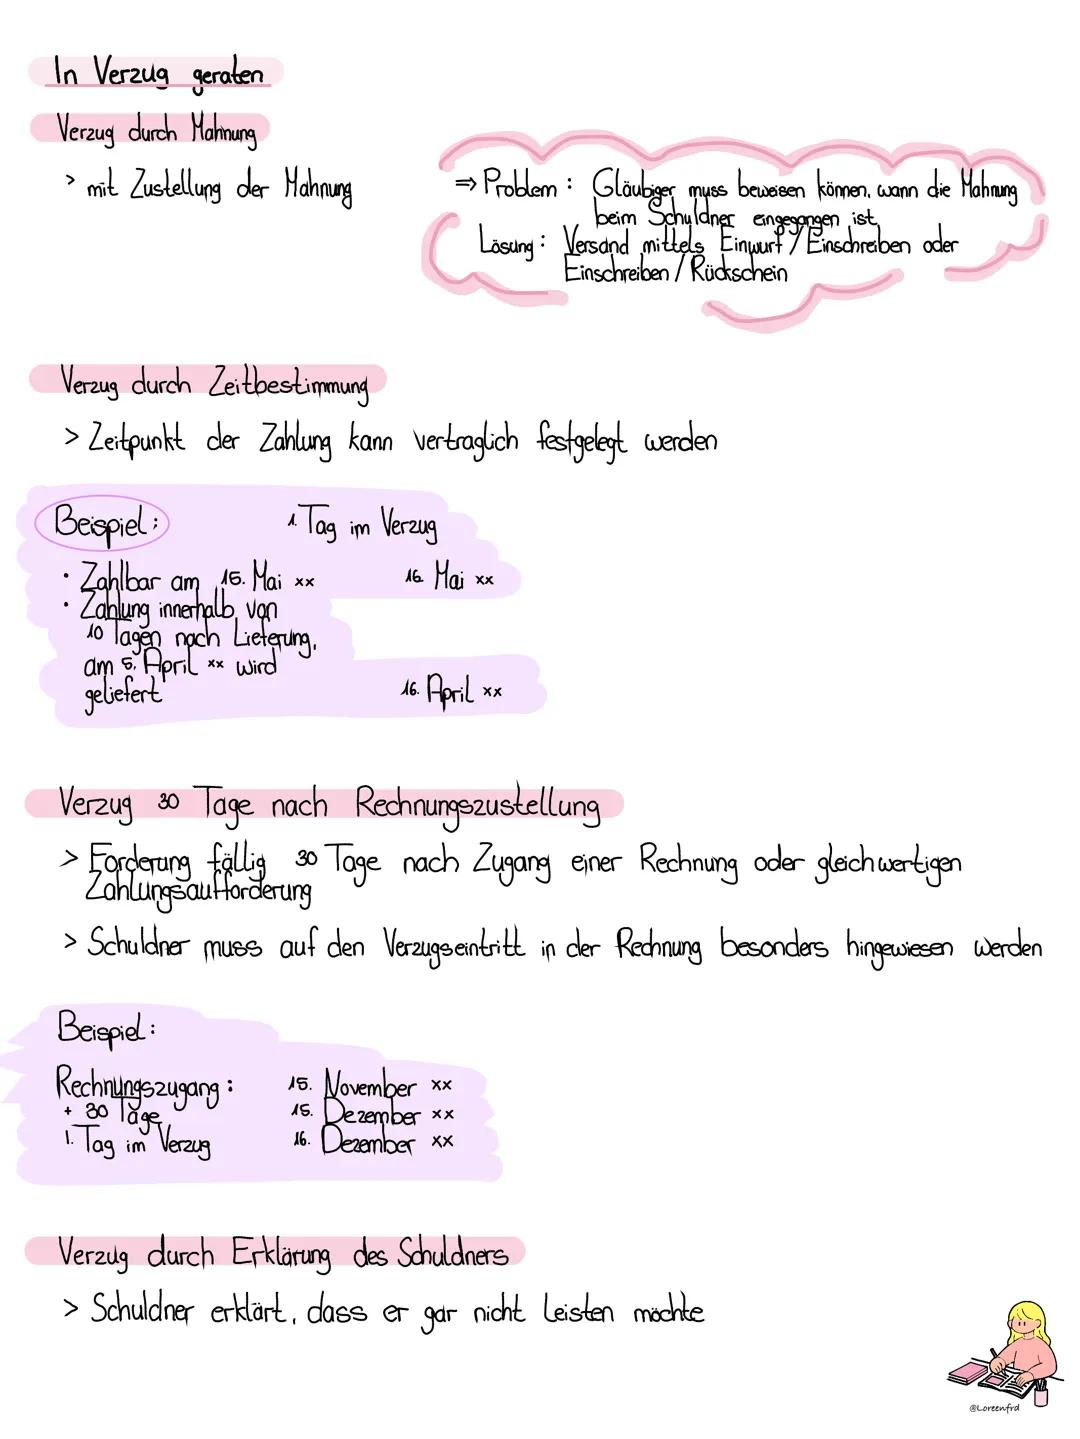 In Verzug geraten
Verzug durch Mahnung
> mit Zustellung der Mahnung
⇒ Problem : Gläubiger muss beweisen können, wann die Mahnung
beim Schuldner eingegangen ist
Lösung : Versand mittels Einwurf / Einschreiben oder
Einschreiben / Rückschein
Verzug durch Zeitbestimmung
> Zeitpunkt der Zahlung kann vertraglich festgelegt werden
Beispiel : 1. Tag im Verzug
• Zahlbar am 15. Mai xx 16. Mai xx
• Zahlung innerhalb von
10 Tagen nach Lieferung,
am 5. April xx wird
geliefert 16. April xx
Verzug 30 Tage nach Rechnungszustellung
> Forderung fällig 30 Tage nach Zugang einer Rechnung oder gleichwertigen
Zahlungsaufforderung
> Schuldner muss auf den Verzugseintritt in der Rechnung besonders hingewiesen werden
Beispiel :
Rechnungszugang : 15. November xx
+ 30 Tage 15. Dezember xx
1. Tag im Verzug 16. Dezember xx
Verzug durch Erklärung des Schuldners
> Schuldner erklärt, dass er gar nicht leisten möchte
@Loreenfrd